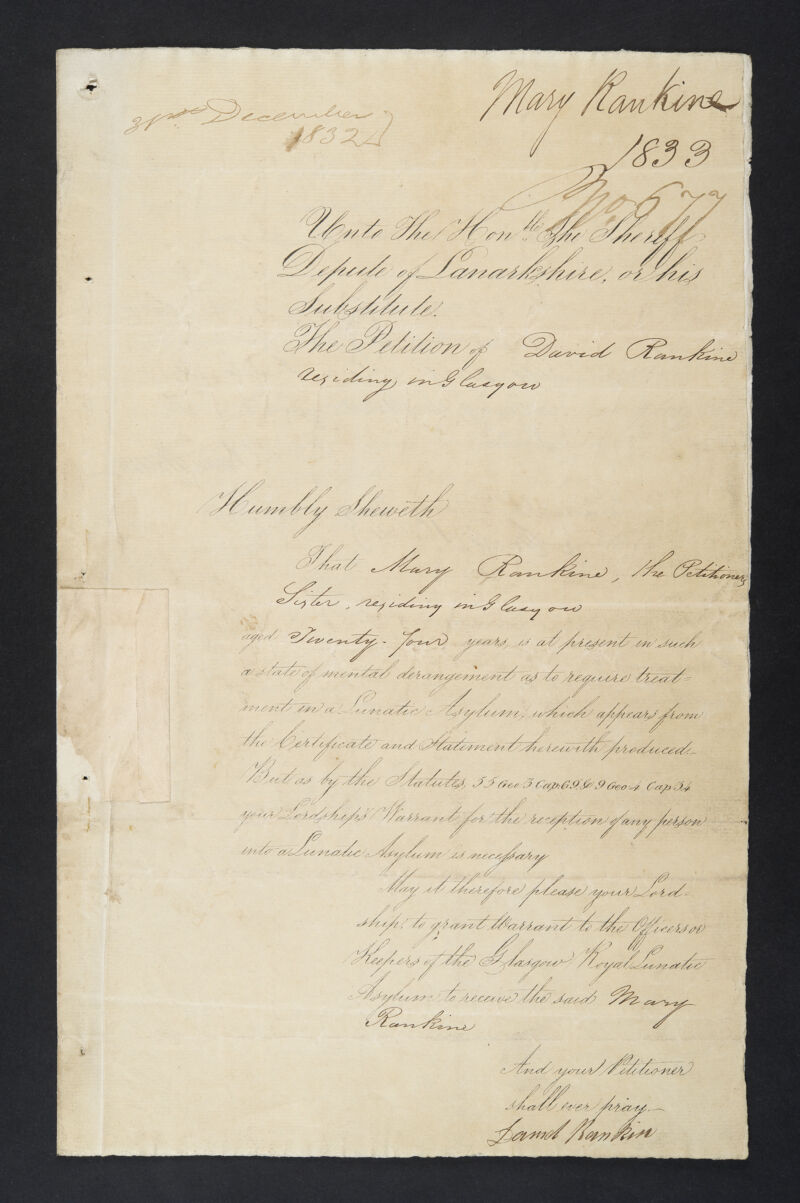 Mary Rankine
31st December
1832
1833
No 677
Unto The Honble The Sheriff
Depute of Lanarkshire, or his
Substitute.
The Petition of David Rankine
residing in Glasgow
Humbly Sheweth
That Mary Rankine, the Petitioners
Sister, residing in Glasgow
aged Twenty-four years, is at present in such
a state of mental derangement as to require treat=
ment in a Lunatic Asylum, which appears from
the Certificate and Statement herewith produced.
But as by the Statutes, 55 Geo 3 Cap 69 & 9 Geo 4 Cap 34
your Lordships Warrant for the reception of any person
into a Lunatic Asylum is necessary
May it therefore please your Lord=
ship, to grant Warrant to the Officers or
Keepers of the Glasgow Royal Lunatic
Asylum to receive the said Mary
Rankine
And your Petitioner
shall ever pray
Rankin